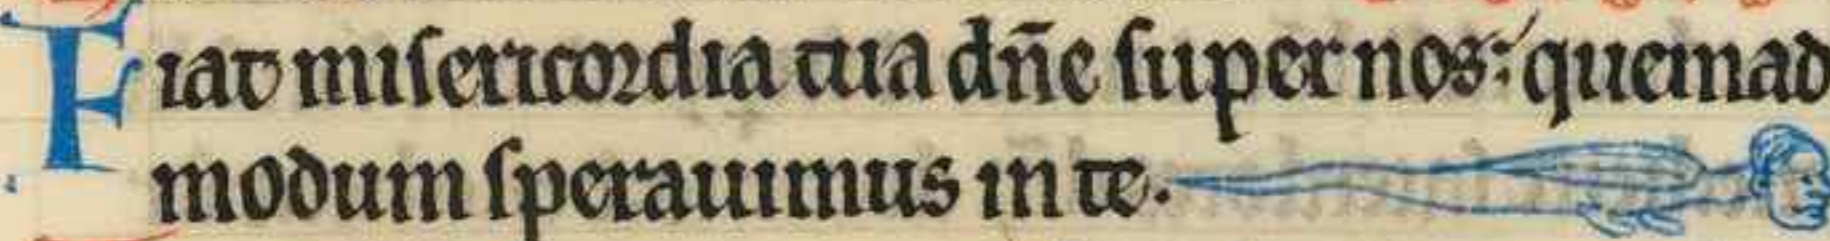 Fiat misericordia tua dn̄e super nos: quemad
modum sperauimus in te.